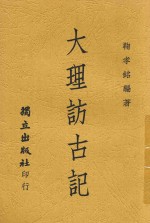 鞠孝銘編著
大理訪古記
獨立出版社
印行